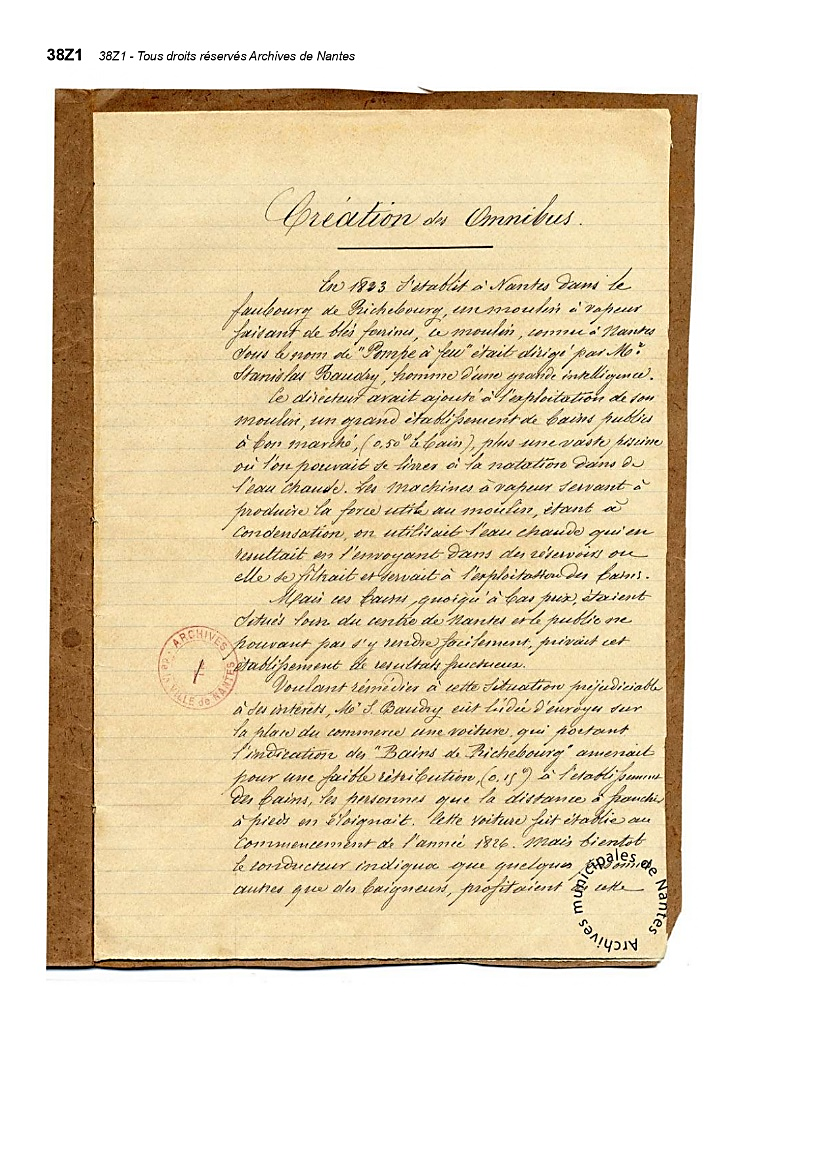 38Z1 38Z1 - Tous droits réservés Archives de Nantes
Création des Omnibus.
En 1823 s'établit à Nantes dans le
faubourg de Richebourg, un moulin à vapeur
faisant de blés farines, ce moulin, connu à Nantes
sous le nom de "Pompe à feu" était dirigé par Mr
Stanislas Baudry, homme d'une grande intelligence.
Ce directeur avait ajouté à l'exploitation de son
moulin, un grand établissement de bains publics
à bon marché, (0.50c le bain), plus une vaste piscine
où l'on pouvait se livrer à la natation dans de
l'eau chaude. Les machines à vapeur servant à
produire la force utile au moulin, étant à
condensation, on utilisait l'eau chaude qui en
resultait en l'envoyant dans des réservoirs ou
elle se filtrait et servait à l'exploitation des bains.
Mais ces bains, quoiqu'à bas prix, étaient
situés loin du centre de Nantes et le public ne
pouvant pas s'y rendre facilement, privait cet
établissement de resultats fructueux.
Voulant rémédier à cette situation préjudiciable
à ses intérêts, Mr S. Baudry eût l'idée d'envoyer sur
la place du commerce une voiture, qui portant
l'indication des "Bains de Richebourg" amenait
pour une faible rétribution, (0.15c) à l'établissement
des bains, les personnes que la distance à franchir
à pieds en éloignait. Cette voiture fut établie au
commencement de l'année 1826. Mais bientôt
le conducteur indiqua que quelques
autres que des baigneurs, profitaient de cette
ARCHIVES
VILLE de NANTES
1
Archives municipales de Nantes